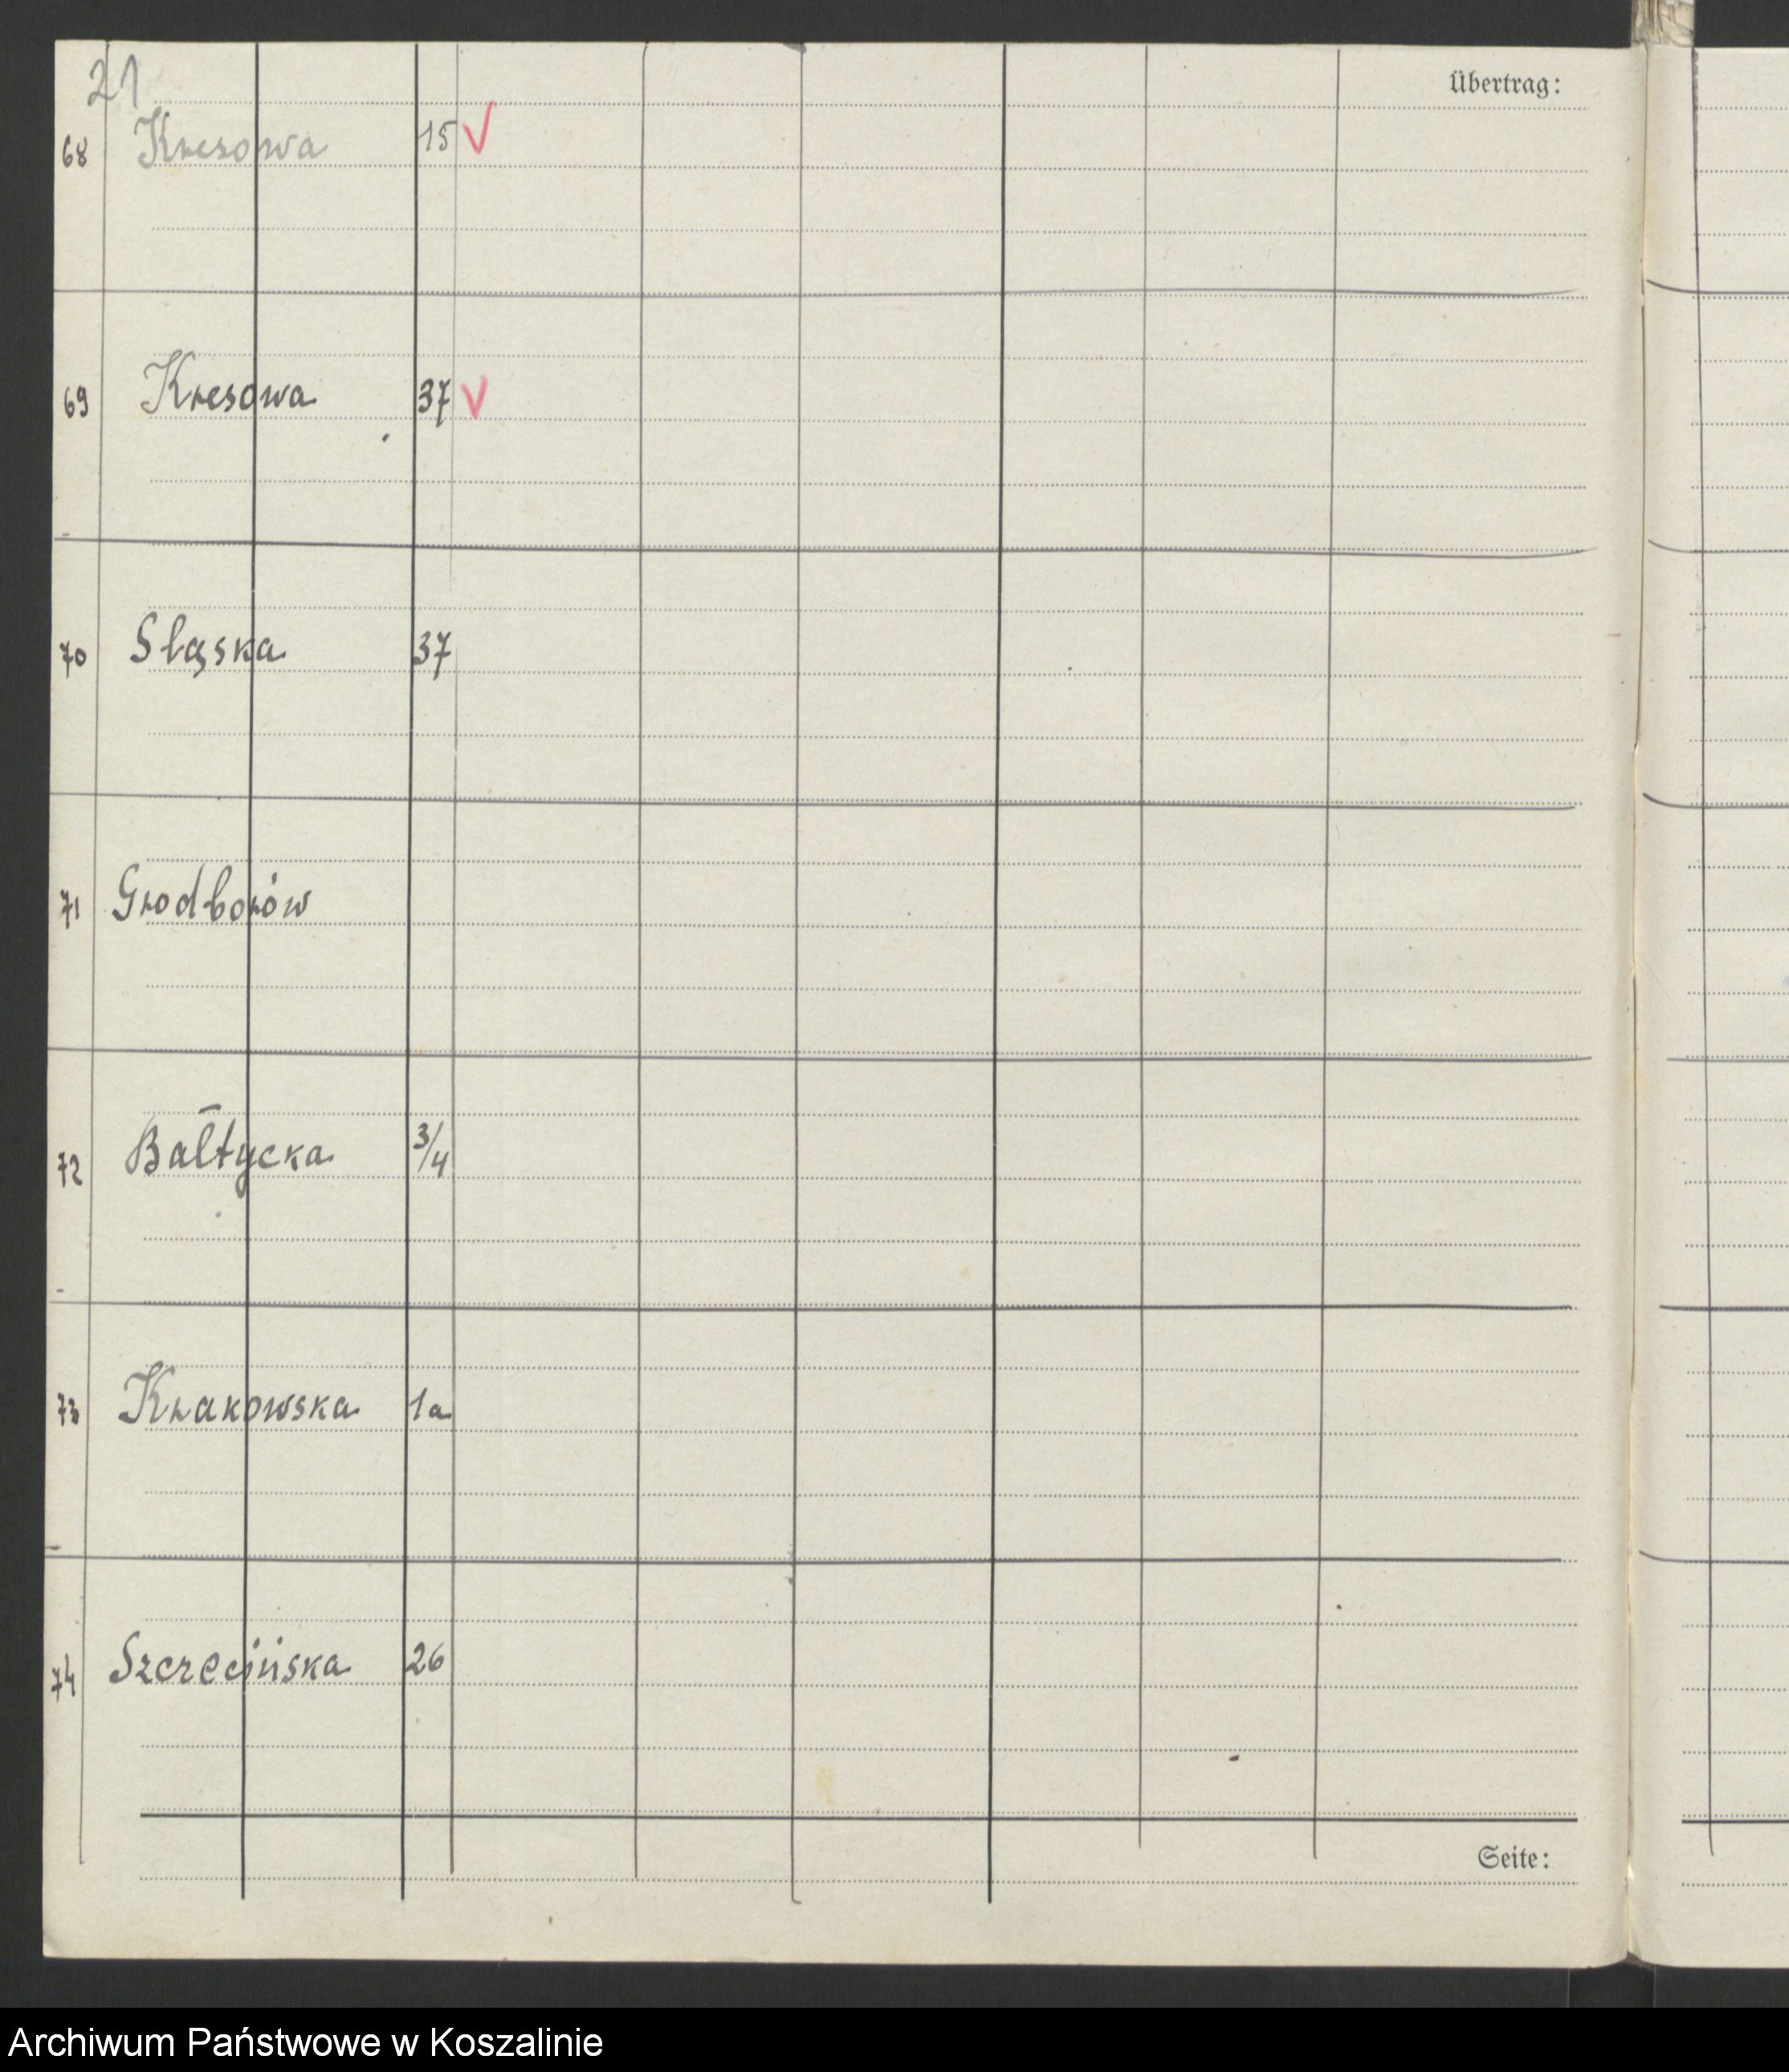 21
Übertrag:
68 Kresowa 15 V
69 Kresowa 37 V
70 Sląska 37
71 Grodborów
72 Bałtycka 3/4
73 Krakowska 1a
74 Szczecińska 26
Seite:
Archiwum Państwowe w Koszalinie